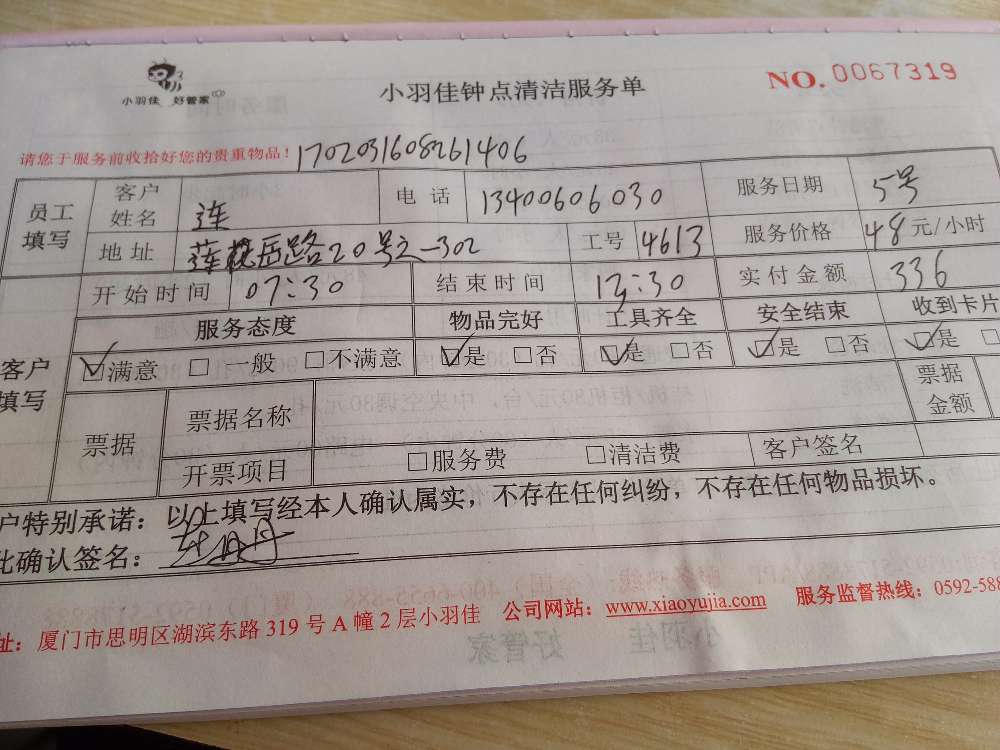 小羽佳 好管家
小羽佳钟点清洁服务单
NO. 0067319
请您于服务前收拾好您的贵重物品! 1702031608261406
员工填写 客户姓名 连 电话 13400606030 服务日期 5号
地址 莲花后路20号之一302 工号 4613 服务价格 48元/小时
客户填写 开始时间 07:30 结束时间 :30 实付金额 336
服务态度 物品完好 工具齐全 安全结束 收到卡片
☑满意 □一般 □不满意 ☑是 □否 ☑是 □否 ☑是 □否 ☑是 □
票据 票据名称 票据金额
开票项目 □服务费 □清洁费 客户签名
户特别承诺：以上填写经本人确认属实，不存在任何纠纷，不存在任何物品损坏。
此确认签名：
址：厦门市思明区湖滨东路319号A幢2层小羽佳 公司网站：www.xiaoyujia.com 服务监督热线：0592-588